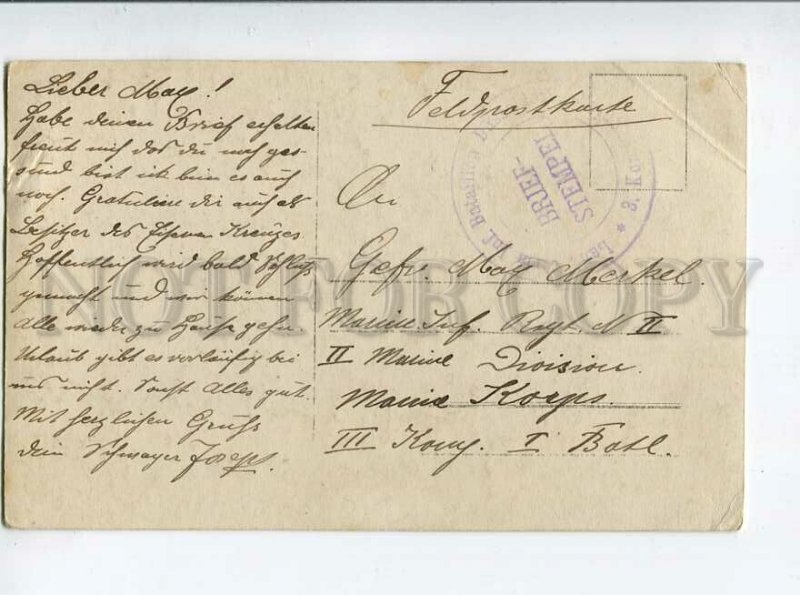 Lieber Max!
Habe deinen Brief erhalten
freut mich das du noch ges-
sund bist ich bin es auch
noch. Gratuliere dir auch als
Besitzer des Eisernen Kreuzes
Hoffentlich wird bald Schluß
gemacht und wir können
Alle wieder zu Hause gehn.
Urlaub gibt es vorläufig bei
uns nicht. Sonst Alles gut.
Mit herzlichen Gruß
dein Schwager Josef.
Feldpostkarte
BRIEF-
STEMPEL
* 3. Kom
An
Gefr. Max Merkel.
Marine Inf. Regt. N II
II Marine Division.
Marine Korps.
III Komp. I Batl.
NOT FOR COPY